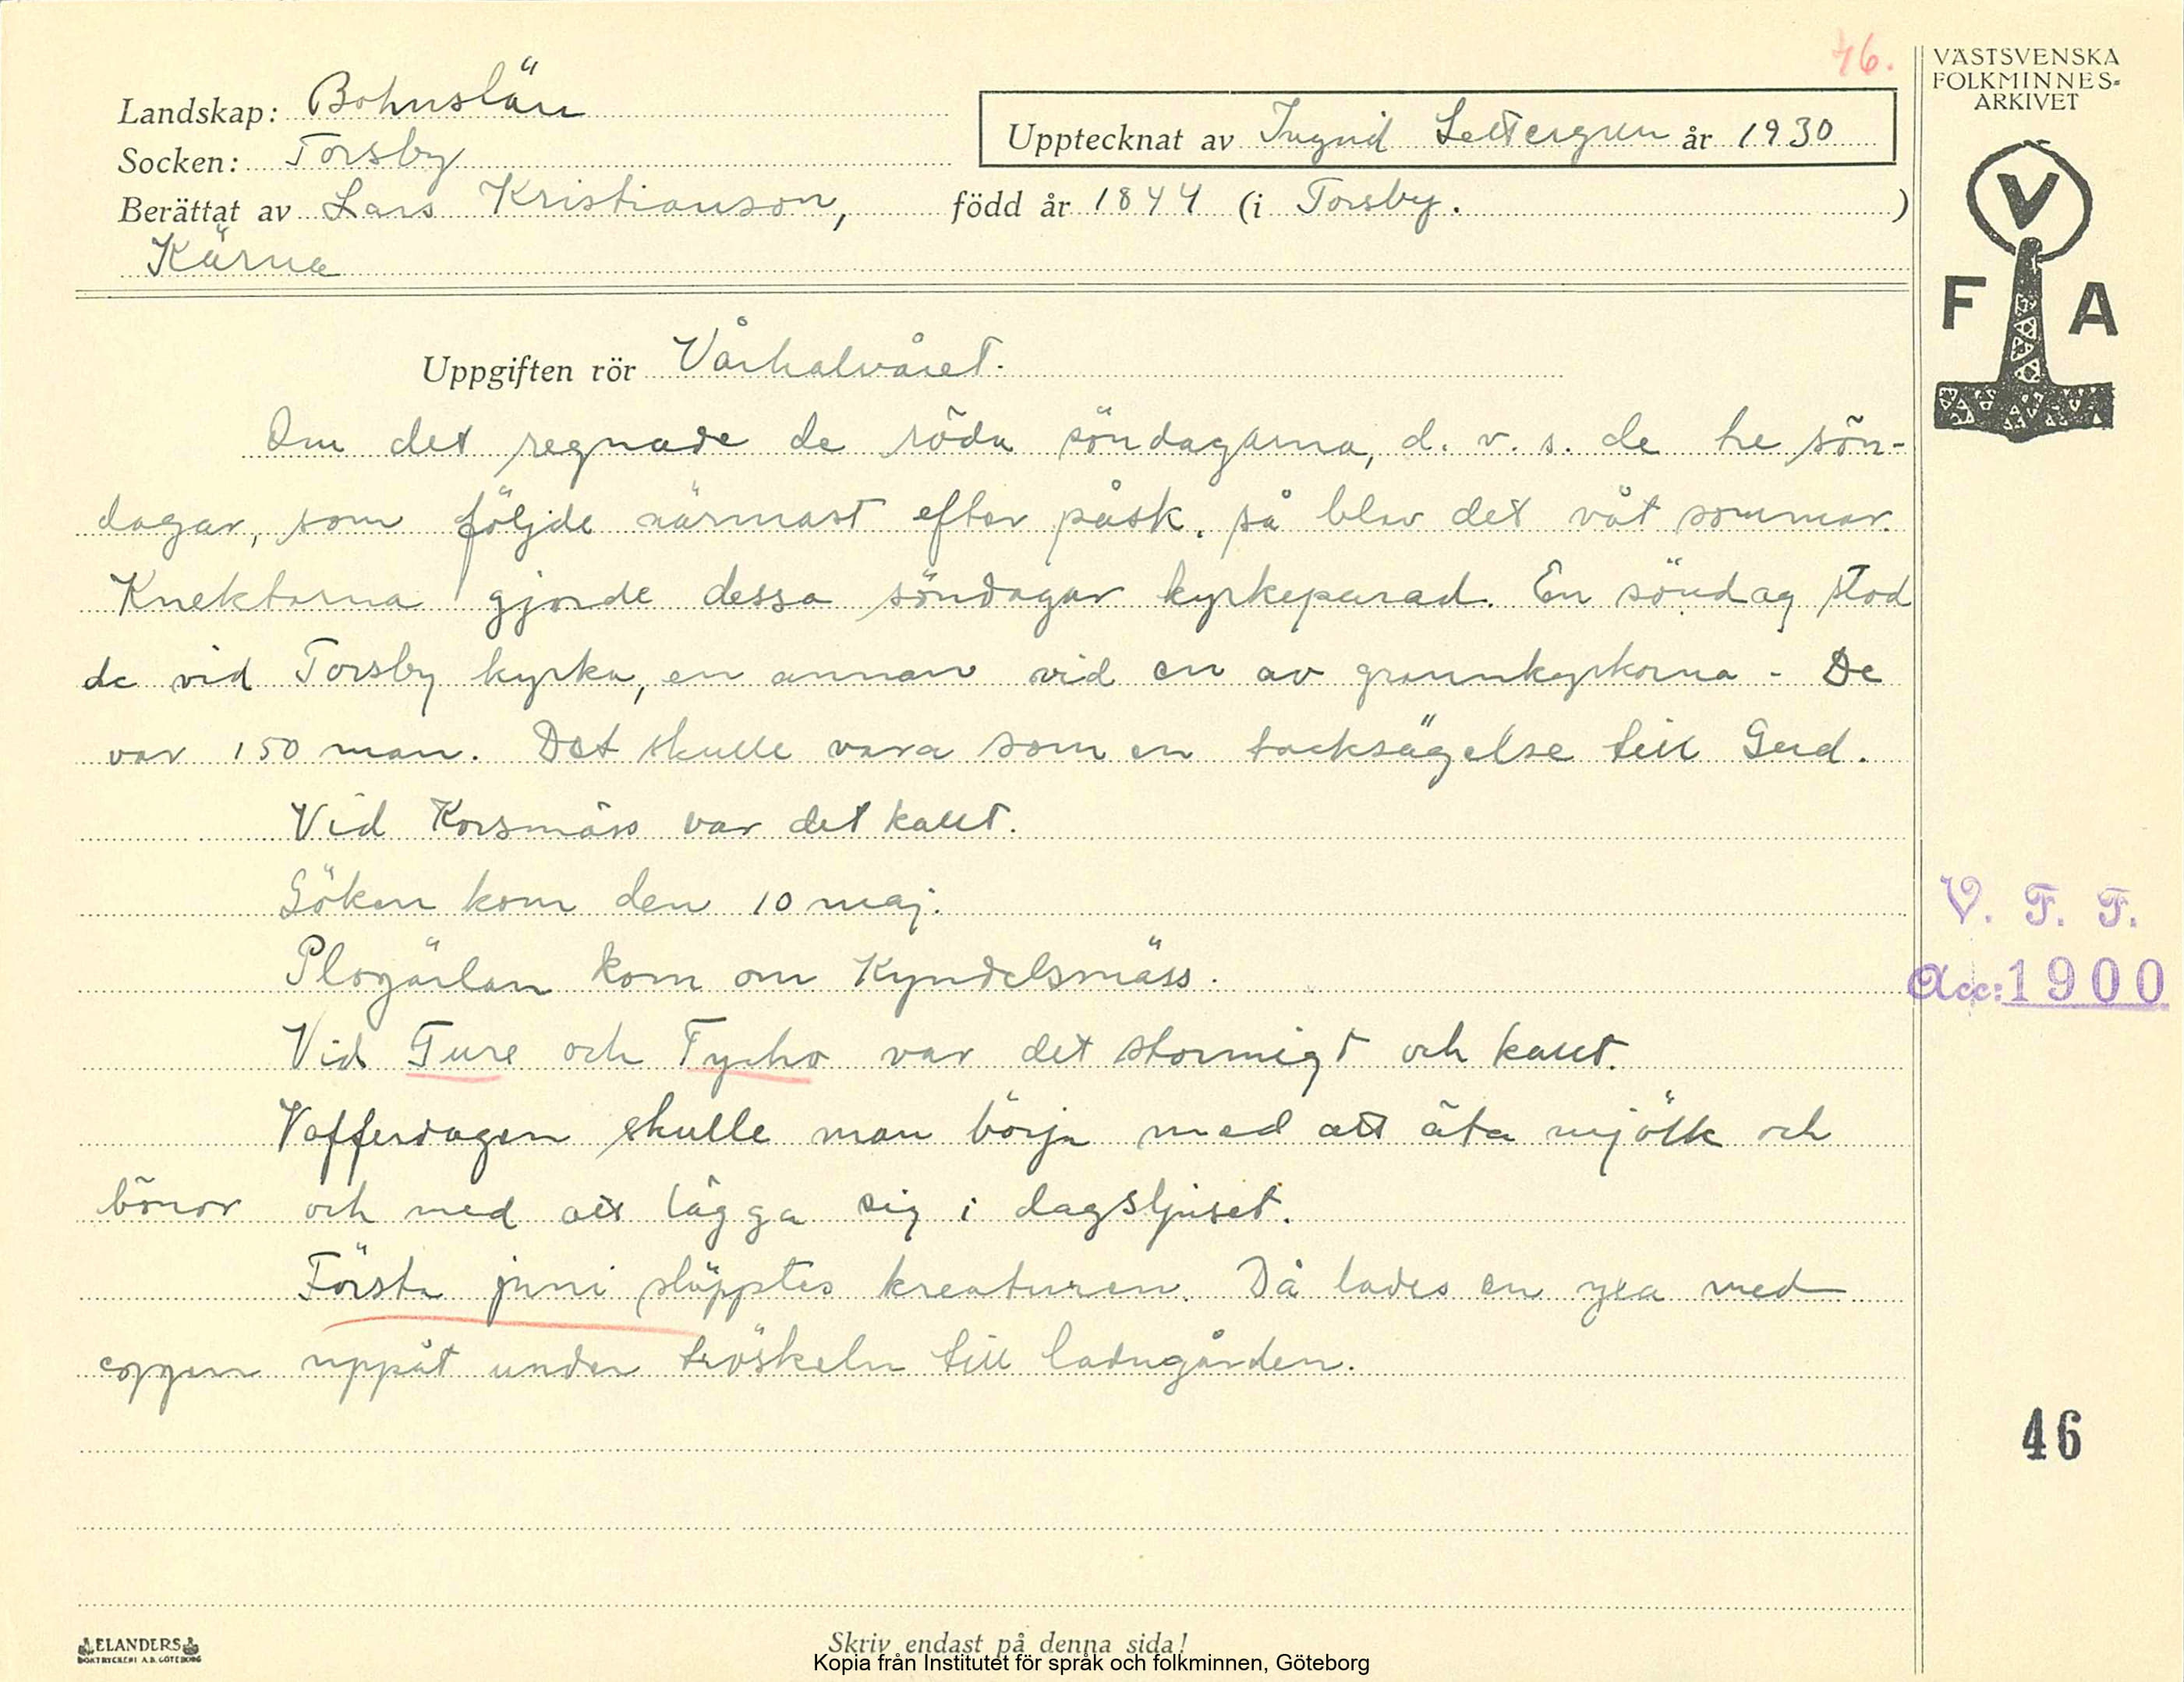 46.
VÄSTSVENSKA
FOLKMINNES-
ARKIVET
Landskap: Bohuslän
Upptecknat av Ingrid Settergren år 1930
Socken: Torsby
Berättat av Lars Kristianson, född år 1844 (i Torsby. )
Kärna
V
F A
Uppgiften rör Vårhalvåret.
Om det regnade de röda söndagarna, d. v. s. de tre sön-
dagar, som följde närmast efter påsk, så blev det våt sommar.
Knektarna gjorde dessa söndagar kyrkeparad. En söndag stod
de vid Torsby kyrka, en annan vid en av grannkyrkorna - De
var 150 man. Det skulle vara som en tacksägelse till Gud.
Vid Korsmäss var det kallt.
Göken kom den 10 maj.
V. F. F.
Plogärlan kom om Kyndelsmäss.
Acc: 1900
Vid Ture och Tycho var det stormigt och kallt.
Vafferdagen skulle man börja med att äta mjölk och
bönor och med att lägga sig i dagsljuset.
Första juni släpptes kreaturen. Då lades en yxa med
eggen uppåt under tröskeln till ladugården.
46
ELANDERS
BOKTRYCKERI A.B. GÖTEBORG
Skriv endast på denna sida!
Kopia från Institutet för språk och folkminnen, Göteborg